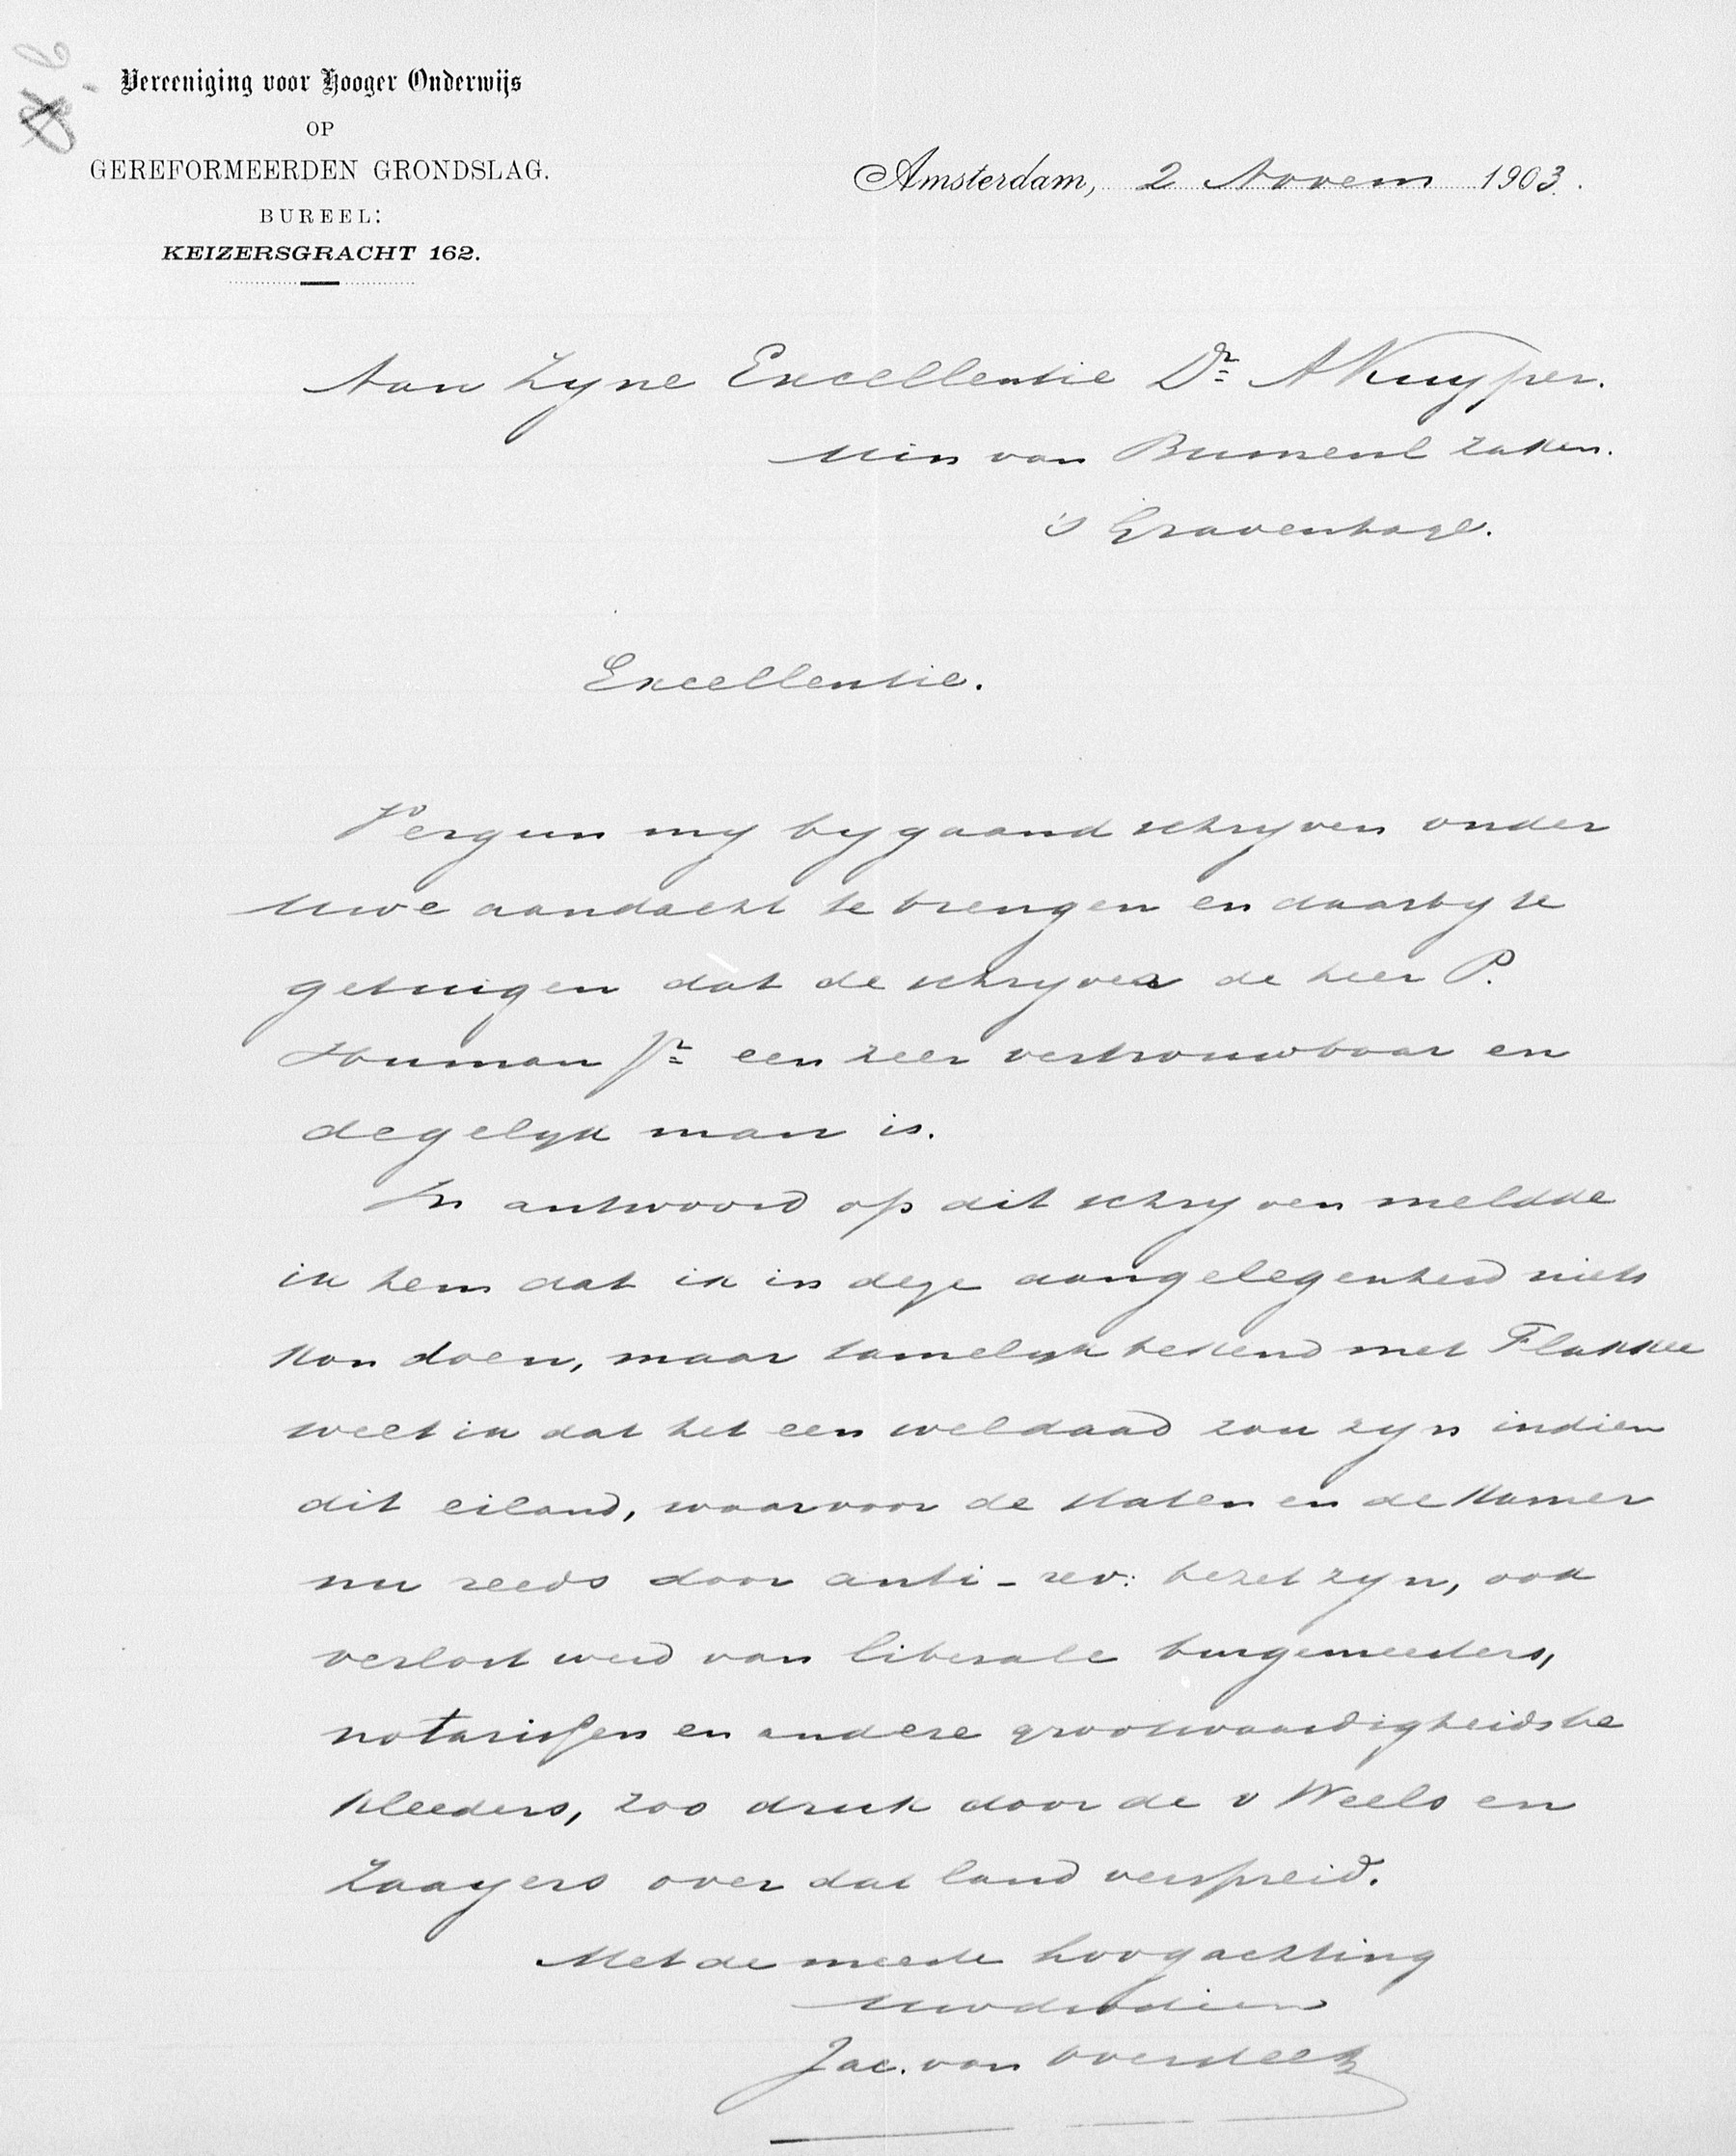 Vereeniging voor Hooger Onderwijs
OP
GEREFORMEERDEN GRONDSLAG.
BUREEL:
KEIZERSGRACHT 162.
Amsterdam, 2 Novem 1903.
Aan Zyne Excellentie Dr A Kuyper.
Min van Binnenl zaken.
's Gravenhage.
Excellentie.
Vergun my bygaand schryven onder
Uwe aandacht te brengen en daarby te
getuigen dat de schryver de heer P.
Human Jr een zeer vertrouwbaar en
degelyk man is.
In antwoord op dit schryven meldde
ik hem dat ik in deze aangelegenheid niets
kon doen, maar tamelyk bekend met Flakkee
weet ik dat het een weldaad zou zyn indien
dit eiland, waarvoor de Staten en de Kamer
nu reeds door anti-rev: bezet zyn, ook
verlost werd van liberale burgemeesters,
notarissen en andere grootwaardigheidsbe
kleeders, zoo druk door de v Weels en
Zaayers over dat land verspreid.
Met de meeste hoogachting
Uwdwdien
Jac. van Oversteeg